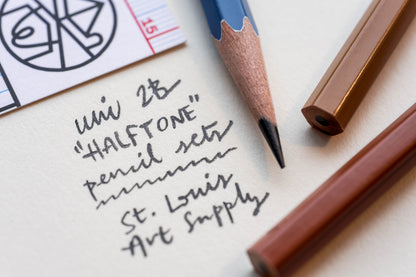 15
uni 2B
"HALFTONE"
pencil sets
St. Louis
Art Supply